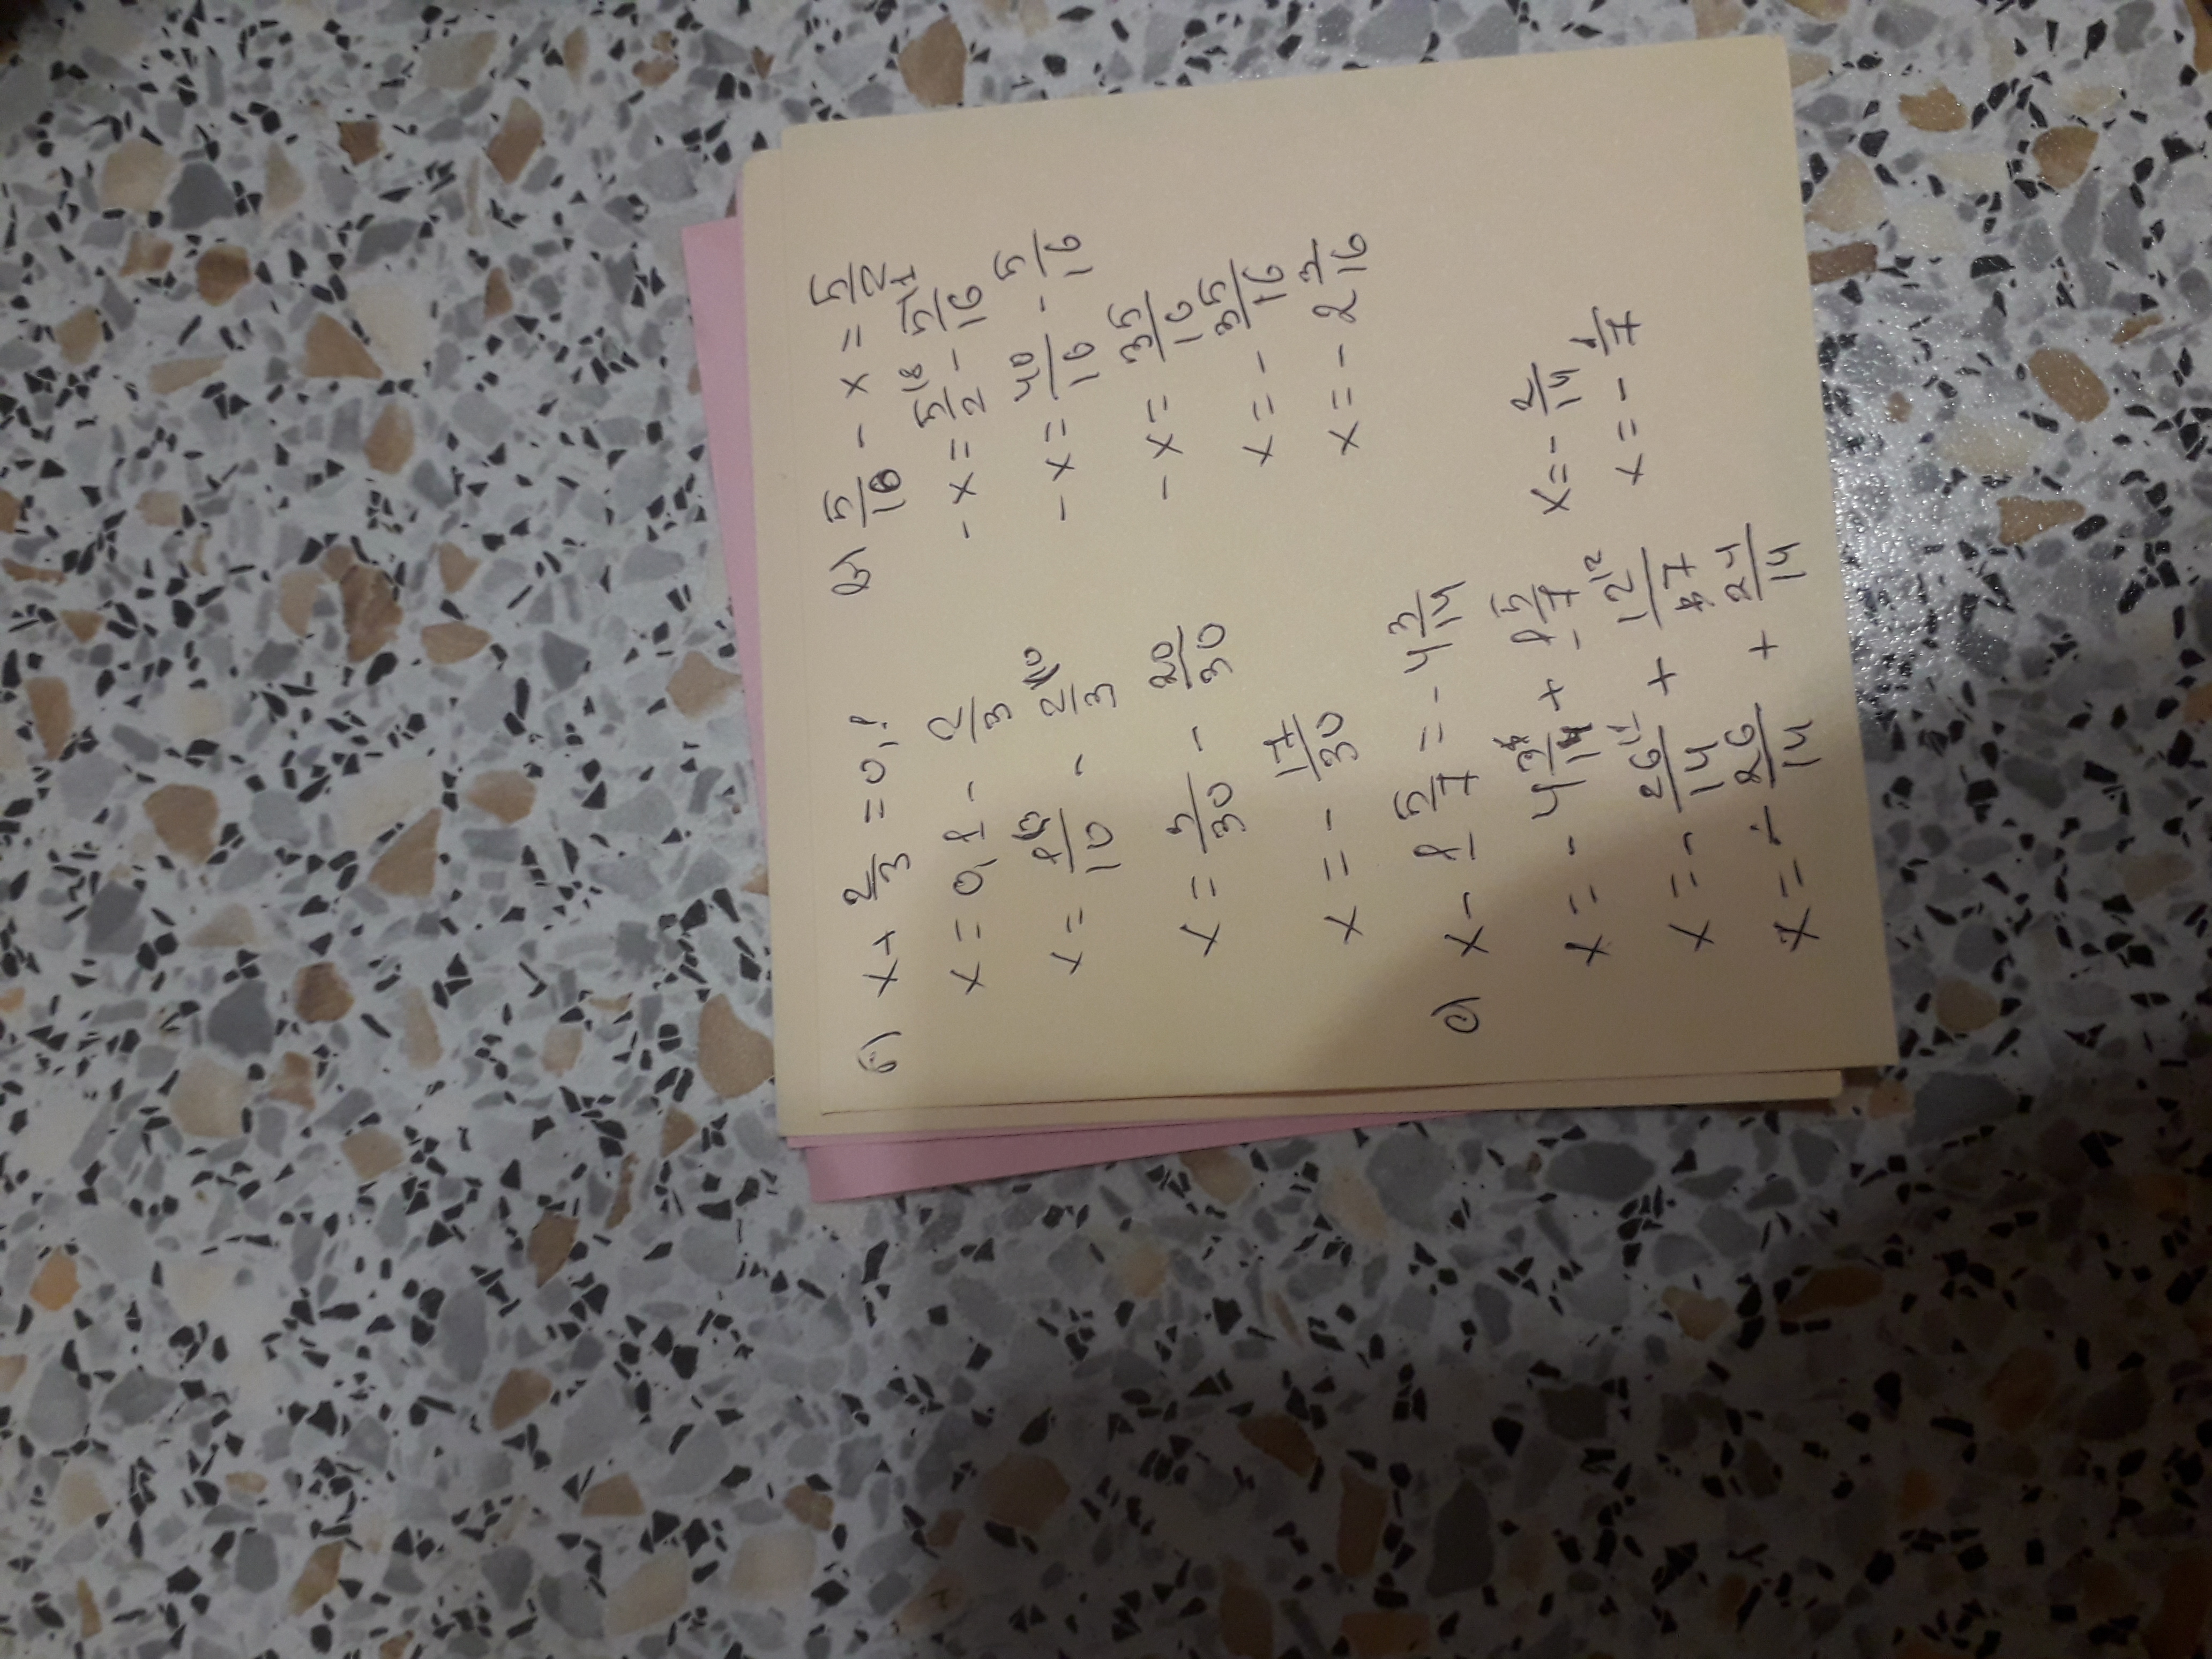 б) x + 2/3 = 0,1
x = 0,1 - 2/3
x = 1/10 - 2/3
x = 3/30 - 20/30
x = - 17/30
в) 5/16 - x = 5/2
- x = 5/2 - 5/16
- x = 40/16 - 5/16
- x = 35/16
x = - 35/16
x = - 2 3/16
x - 1 5/7 = - 4 3/14
x = - 4 3/14 + 1 5/7
x = - 26/14 + 12/7
x = - 26/14 + 24/14
x = - 2/14
x = - 1/7